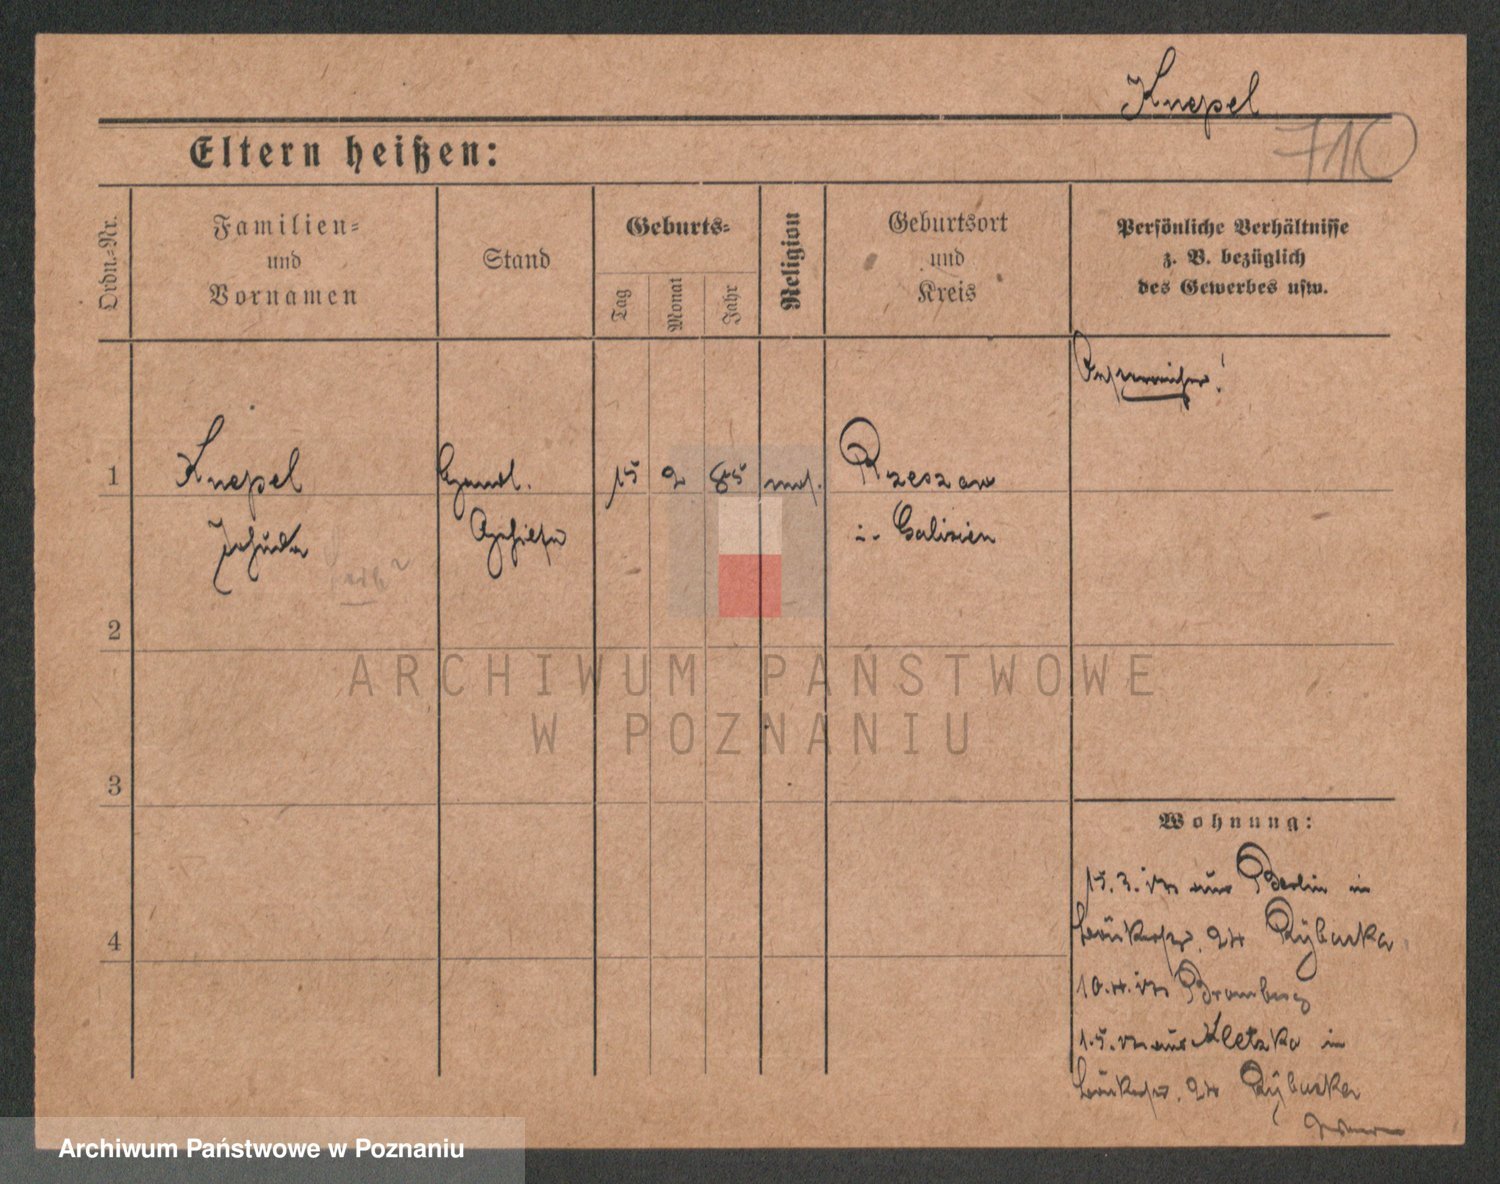 Knepel
710
Eltern heißen:
Ordn.-Nr.
Familien-
und
Vornamen
Stand
Geburts-
Tag
Monat
Jahr
Religion
Geburtsort
und
Kreis
Persönliche Verhältnisse
z. B. bezüglich
des Gewerbes usw.
Oesterreicher!
1
Knepel
Handl.
15
2
85
mos.
Rzeszow
Jehuda
Gehilfe
i. Galizien
2
ARCHIWUM PAŃSTWOWE
W POZNANIU
3
Wohnung:
15.3. aus Berlin in
24 Rybarka
4
10.4. Bromberg
1.5. aus Kletzko in
24 Rybarka
Archiwum Państwowe w Poznaniu